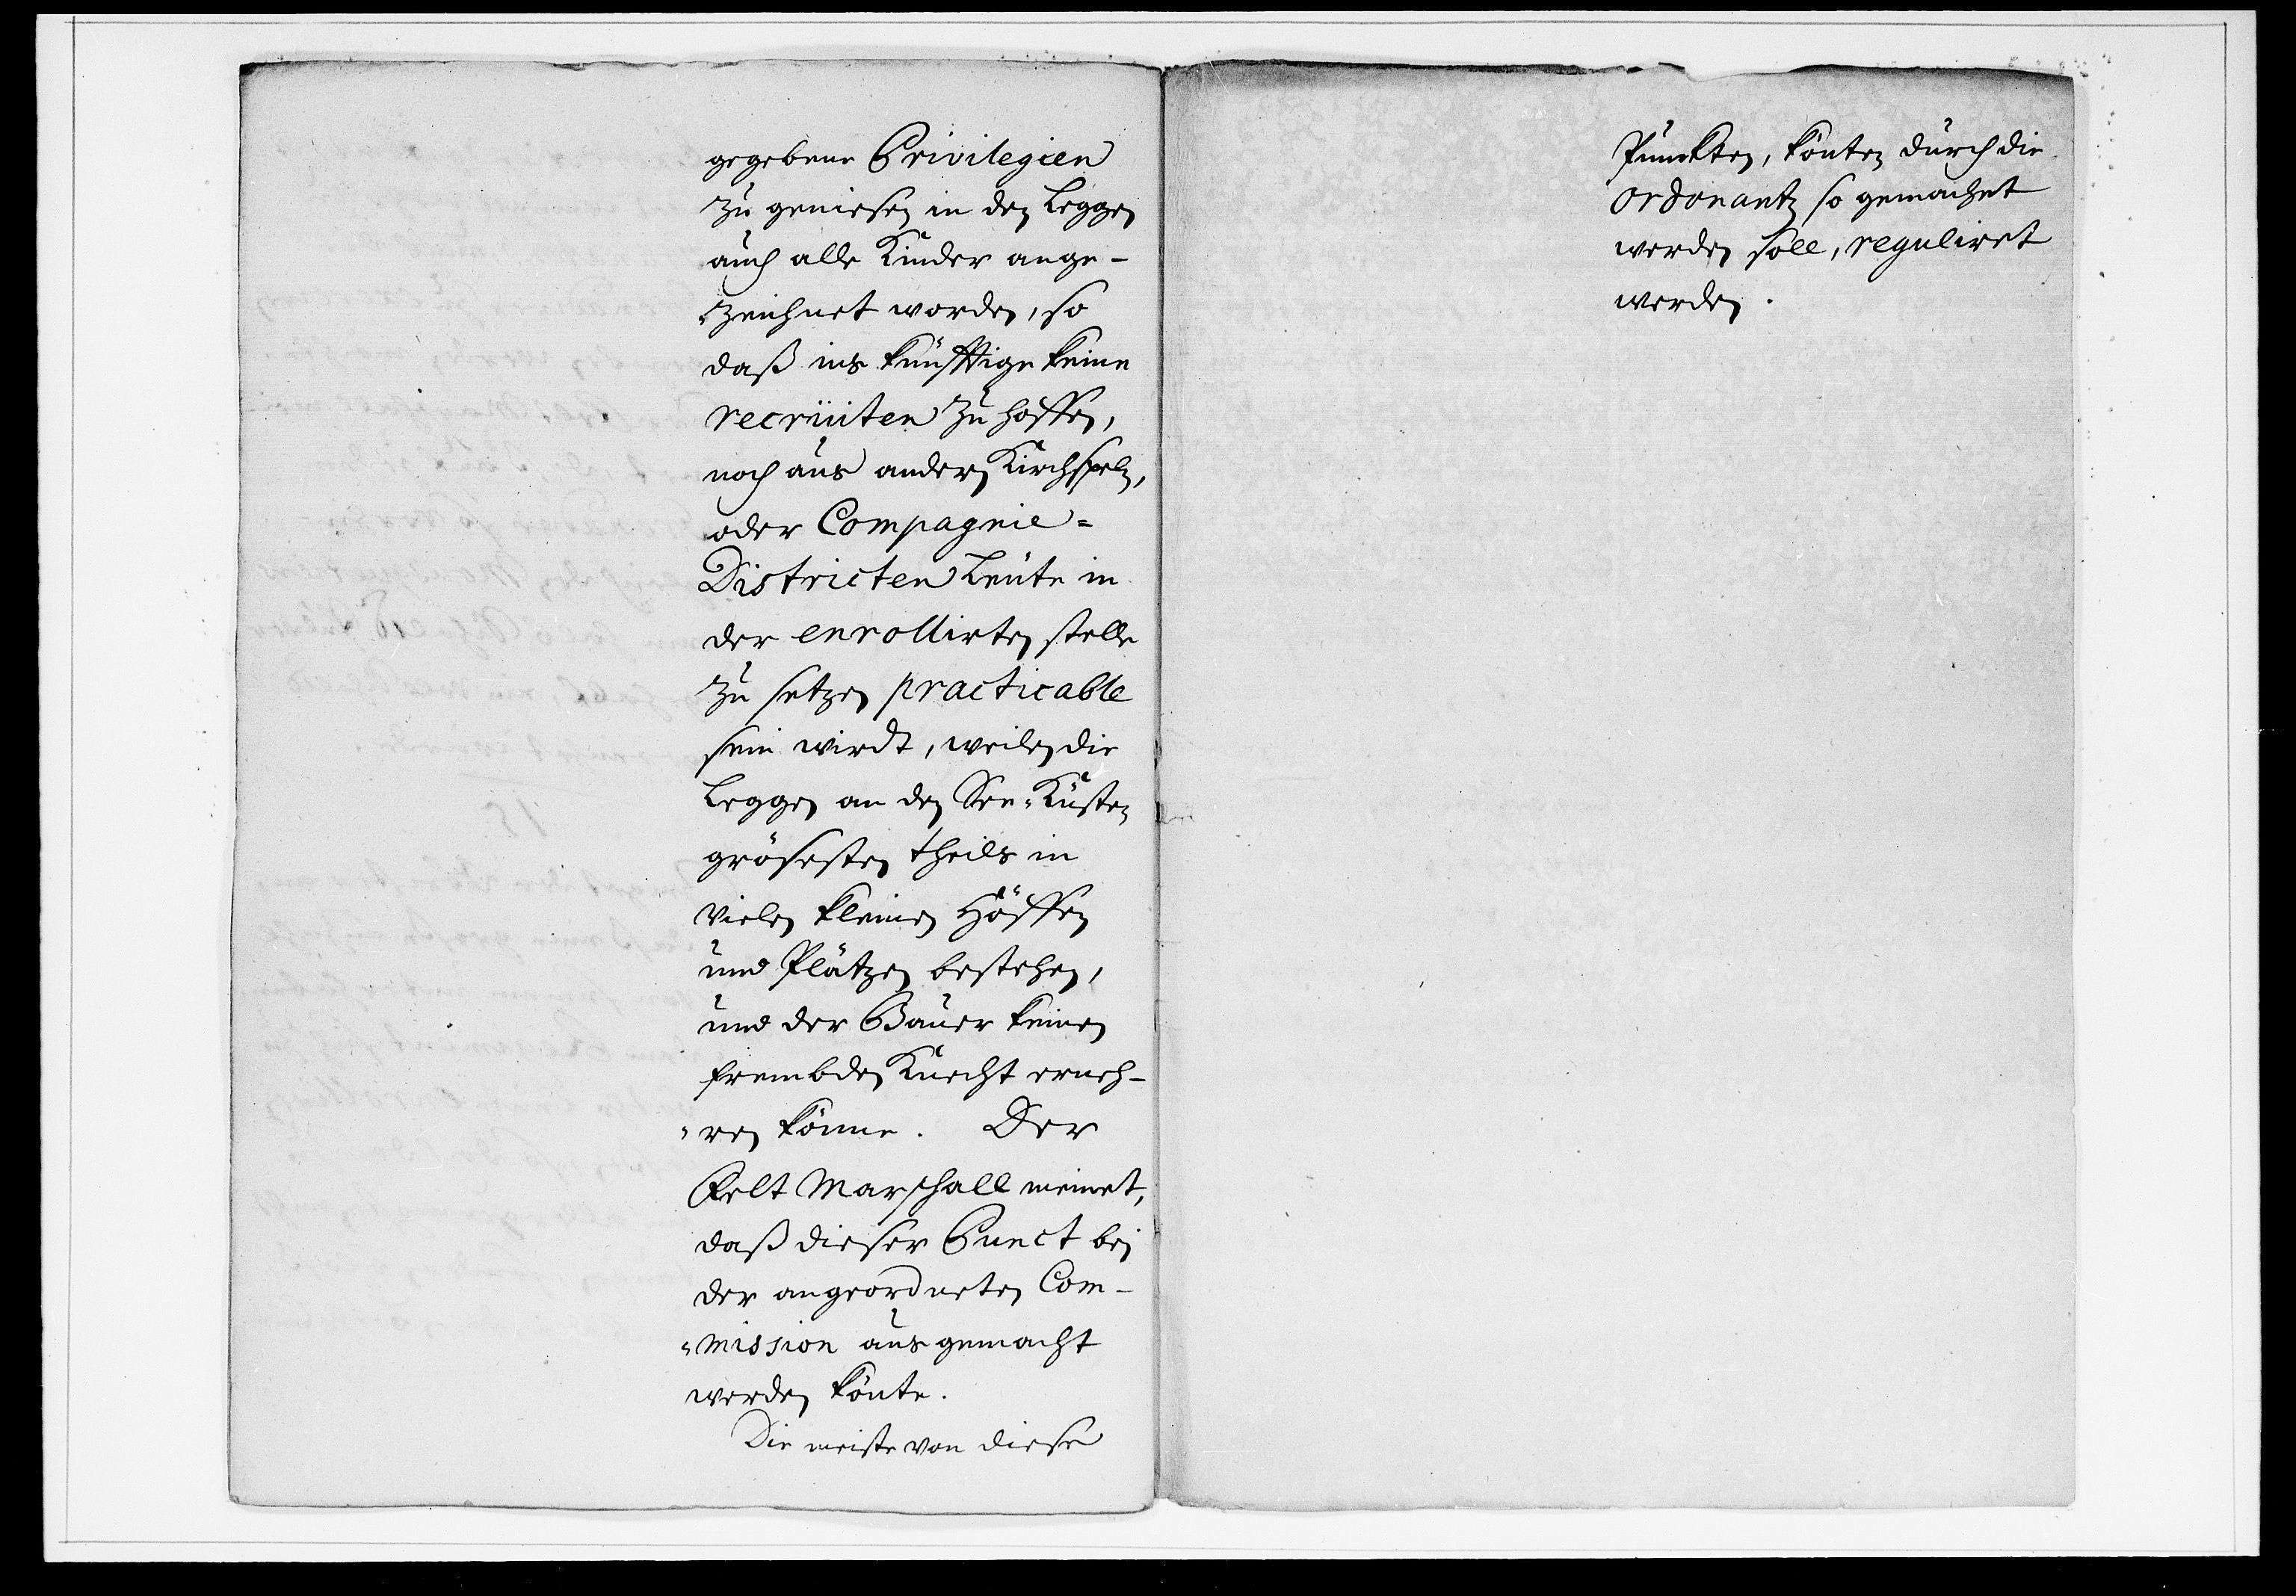 gegebene Privilegien
zu geniesen in den Leggen
auch alle Kinder ange-
-zeichnet worden, so
daß ins künfftige keine
recruiten zu hoffen,
noch aus andern Kirchspeln,
oder Compagnie=
Districten Leute in
der enrollirten stelle
zu setzen practicable
sein wirdt, weilen die
Leggen an den See-Küsten
grösesten theils in
vielen kleinen Höffen
und Plätzen bestehen,
und der Bauer keinen
frembden Knecht erneh-
-ren könne. Der
Felt Marschall meinet,
daß dieser Punct bei
der angeordneten Com-
-mission ausgemacht
werden könte.
Die meiste von diese
Punckten, könten durch die
ordonantz so gemachet
werden soll, reguliret
werden.